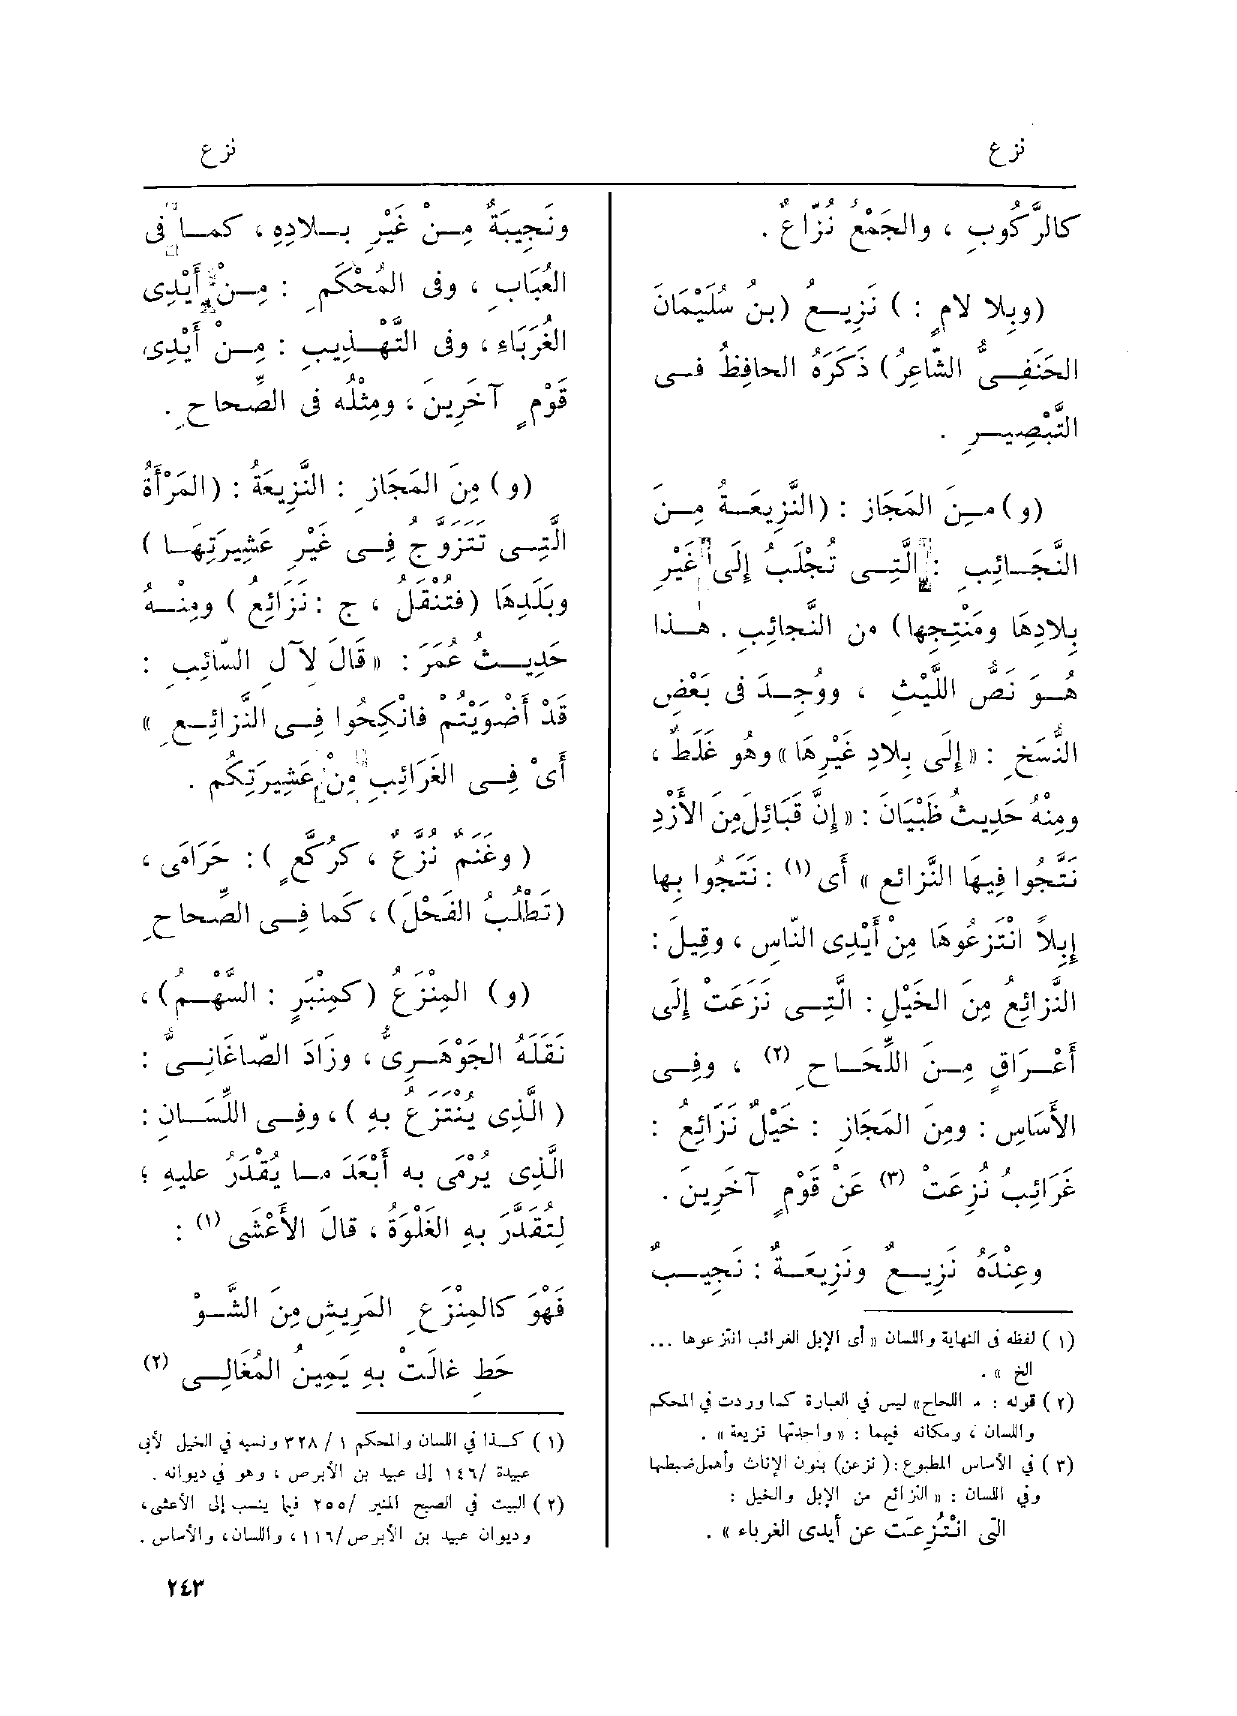 نزع
نزع
كالرَّكُوبِ ، والجَمْعُ نُزّاعٌ .
(وبِلا لامٍ : ) نَزِيــعُ (بنُ سُلَيْمَانَ
الحَنَفِــىُّ الشّاعِرُ) ذَكَرَهُ الحافِظُ فــى
التَّبْصِيــرِ .
(و) مــنَ المَجَازِ : (النَّزِيعَــةُ مِــنَ
النَّجَــائِبِ : الَّتِــى تُجْلَبُ إِلَى غَيْرِ
بِلادِهَا ومَنْتِجِها) من النَّجائِبِ . هــذا
هُــوَ نَصُّ اللَّيْثِ ، ووُجِــدَ فى بَعْضِ
النُّسَخِ : « إِلَى بِلادِ غَيْرِهَا » وهُو غَلَطٌ ،
ومِنْهُ حَدِيثُ ظَبْيَانَ : « إِنَّ قَبَائِلَ مِنَ الأَزْدِ
نَتَّجُوا فِيهَا النَّزائعَ » أَى (١) : نَتَجُوا بِها
إِبِلاً انْتَزَعُوهَا مِنْ أَيْدِى النّاسِ ، وقِيلَ :
النَّزائِعُ مِنَ الخَيْلِ : الَّتِــى نَزَعَتْ إِلَى
أَعْــرَاقٍ مِــنَ اللِّحَــاحِ (٢) ، وفِــى
الأَسَاسِ : ومِنَ المَجَازِ : خَيْلٌ نَزَائِعُ :
غَرَائِبُ نُزِعَتْ (٣) عَنْ قَوْمٍ آخَرِينَ .
وعِنْدَهُ نَزِيــعٌ ونَزِيعَــةٌ : نَجِيــبٌ
(١) لفظه فى النهاية واللسان « أى الإبل الغرائب انتزعوها ...
الخ » .
(٢) قوله : « اللحاح» ليس في العبارة كما وردت في المحكم
واللسان ، ومكانه فيهما : « واحدتها نزيعة » .
(٣) في الأساس المطبوع : ( نزعن) بنون الإناث وأهمل ضبطها
وفي اللسان : « النزائع من الإبل والخيل :
التى انْتُزِعَت عن أيدى الغرباء » .
ونَجِيبَةٌ مِــنْ غَيْرِ بــلادِهِ ، كمــا فى
العُبَابِ ، وفى المُحْكَمِ : مِــنْ أَيْدِى
الغُرَبَاءِ ، وفى التَّهْــذِيبِ : مِــنْ أَيْدِى
قَوْمٍ آخَرِينَ ، ومِثْلُه فى الصِّحاحِ .
(و) مِنَ المَجَازِ : النَّزِيعَةُ : (المَرْأَةُ
الَّتِــى تَتَزَوَّجُ فِــى غَيْرِ عَشِيرَتِهَــا )
وبَلَدِهَا (فتُنْقَلُ ، ج : نَزَائِعُ ) ومِنْــهُ
حَدِيــثُ عُمَرَ : « قَالَ لآلِ السّائِبِ :
قَدْ أَضْوَيْتُمْ فانْكِحُوا فِــى النَّزائِــعِ »
أَىْ فِــى الغَرَائِبِ مِنْ عَشِيرَتِكُم .
( وغَنَمٌ نُزَّعٌ ، كرُكَّعٍ ) : حَرَامَى ،
(تَطْلُبُ الفَحْلَ) ، كَما فِــى الصِّحاحِ
(و) المِنْزَعُ (كمِنْبَرٍ : السَّهْــمُ) ،
نَقَلَهُ الجَوْهَــرِىُّ ، وزَادَ الصّاغَانِــىُّ :
( الَّذِى يُنْتَزَعُ بِهِ ) ، وفِــى اللِّسَــانِ :
الَّذِى يُرْمَى به أَبْعَدَ مــا يُقْدَرُ عليهِ ؛
لِتُقَدَّرَ بِهِ الغَلْوَةُ ، قالَ الأَعْشَى (١) :
فَهْوَ كالمِنْزَعِ المَرِيشِ مِنَ الشَّــوْ
حَطِ غالَتْ بِهِ يَمِينُ المُغَالِــى (٢)
(١) كــذا في اللسان والمحكم ١ / ٣٢٨ ونسبه في الخيل لأبى
عبيدة /١٤٦ إلى عبيد بن الأبرص ، وهو في ديوانه .
(٢) البيت في الصبح المنير /٢٥٥ فيما ينسب إلى الأعشى،
وديوان عبيد بن الأبرص /١١٦ ، واللسان، والأساس .
٢٤٣